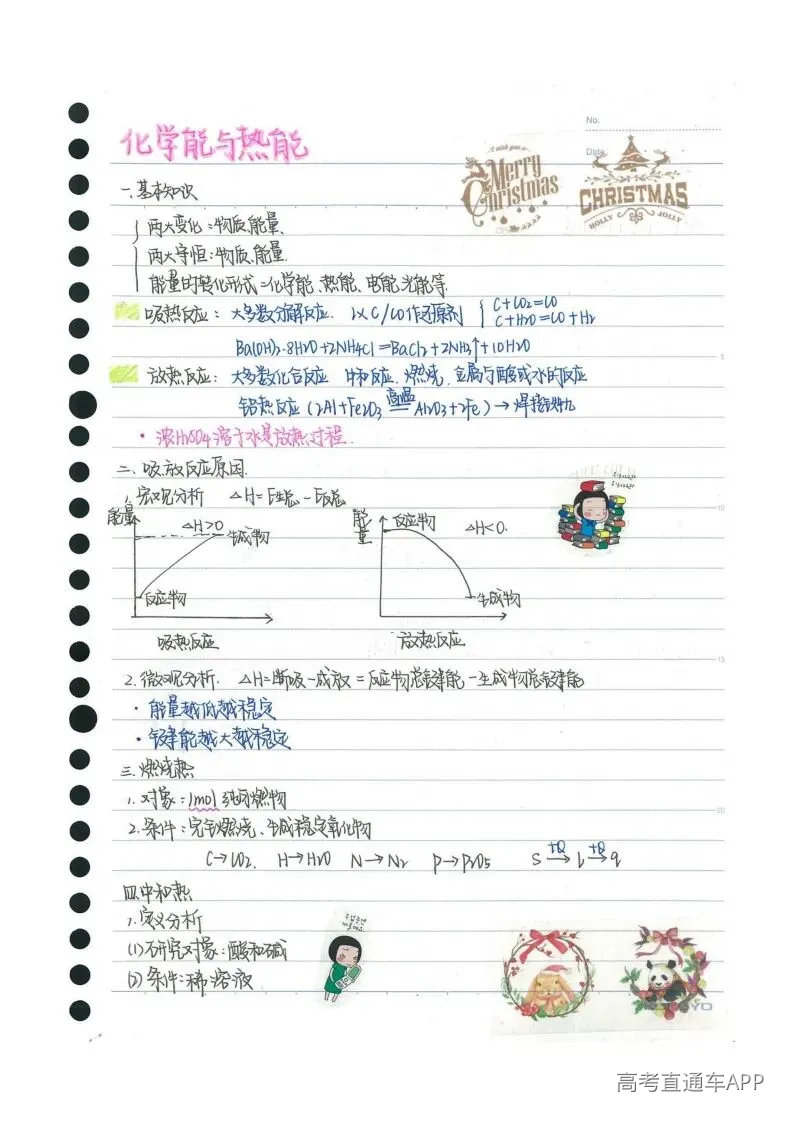 No.
Date
化学能与热能
I wish you a
Merry
Christmas
CHRISTMAS
HOLLY JOLLY
一.基本知识
两大变化:物质、能量.
两大守恒:物质、能量.
能量的转化形式=化学能、热能、电能、光能等.
吸热反应: 大多数分解反应. 以C/CO作还原剂 C+CO2=CO
C+H2O=CO+H2
Ba(OH)2·8H2O+2NH4Cl=BaCl2+2NH3↑+10H2O
5
放热反应: 大多数化合反应 中和反应. 燃烧. 金属与酸或水的反应
铝热反应(2Al+Fe2O3 高温 Al2O3+2Fe)→焊接铁轨
· 浓H2SO4溶于水是放热过程.
二、吸放反应原因.
1.宏观分析 △H=E生总-E反总
10
能量 △H>0 生成物 反应物 吸热反应
能量 反应物 △H<0. 生成物 放热反应
15
2.微观分析. △H=断吸-成放=反应物总键能-生成物总键能
· 能量越低越稳定
· 键能越大越稳定
三.燃烧热
1.对象:1mol纯可燃物
20
2.条件:完全燃烧、生成稳定氧化物
C→CO2. H→H2O N→N2 P→P2O5 S +Q→ l +Q→ g
四.中和热
1.定义分析
(1)研究对象:酸和碱
(2)条件:稀溶液
高考直通车APP